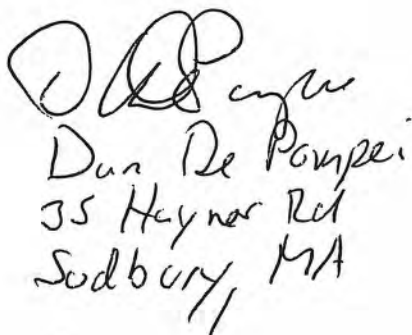 Dan De Pompei
35 Haynes Rd
Sudbury, MA